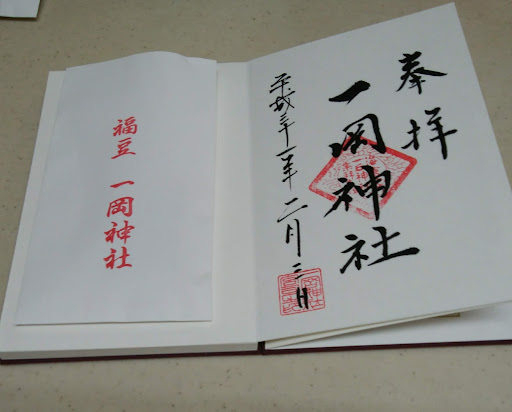 奉拝
一岡神社
平成三十一年二月三日
福豆 一岡神社